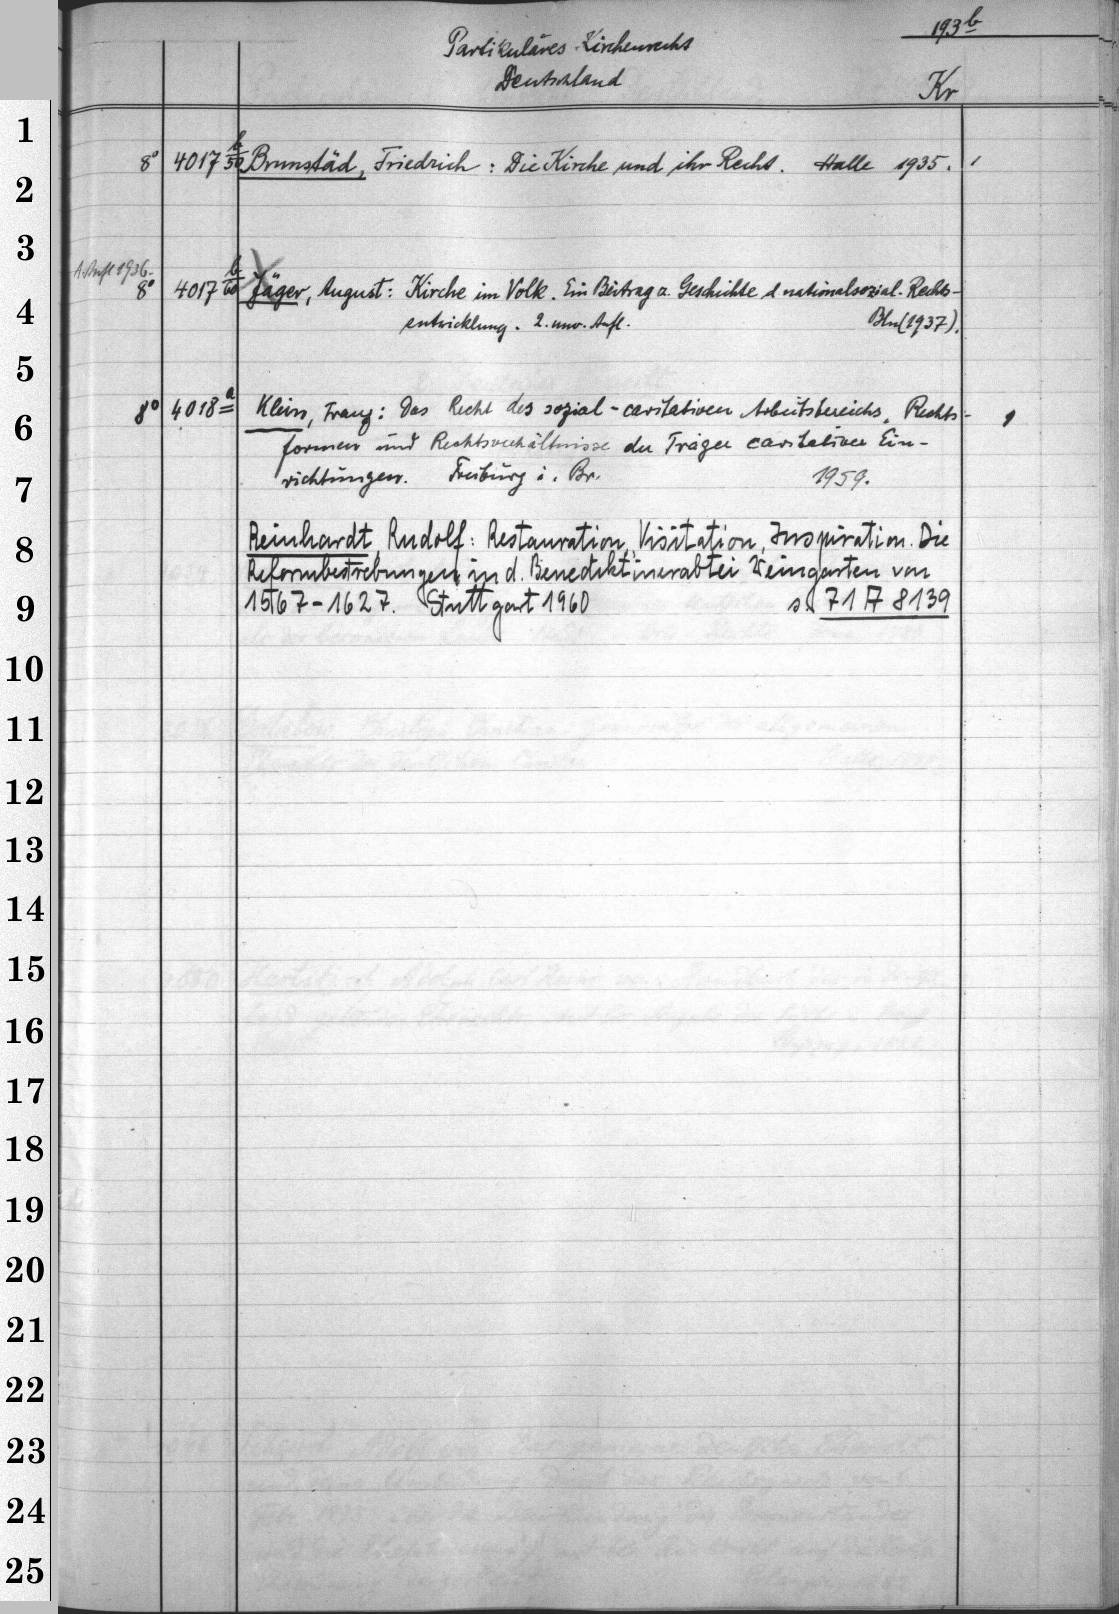 193 b
Partikuläres Kirchenrecht
Deutschland
Kr
8° 4017 b/50 Brunstäd, Friedrich : Die Kirche und ihr Recht. Halle 1935.
1. Aufl 1936.
8° 4017 b/60 Jäger, August : Kirche im Volk. Ein Beitrag z. Geschichte d nationalsozial. Rechts-
entwicklung. 2. unv. Aufl. Bln (1937).
8° 4018 a Klein, Franz : Das Recht des sozial-caritativen Arbeitsbereichs. Rechts-
formen und Rechtsverhältnisse der Träger caritativer Ein-
richtungen. Freiburg i. Br. 1959.
Reinhardt, Rudolf : Restauration, Visitation, Inspiration. Die
Reformbestrebungen in d. Benediktinerabtei Weingarten von
1567-1627. Stuttgart 1960 s. 71 A 8139
1
2
3
4
5
6
7
8
9
10
11
12
13
14
15
16
17
18
19
20
21
22
23
24
25